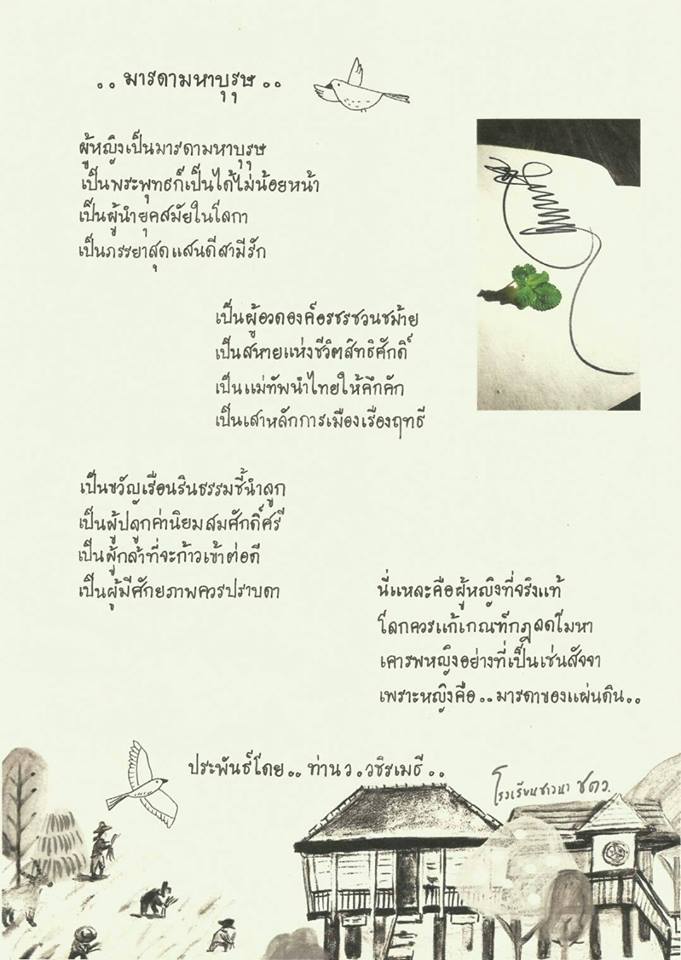 .. มารดามหาบุรุษ ..
ผู้หญิงเป็นมารดามหาบุรุษ
เป็นพระพุทธก็เป็นได้ไม่น้อยหน้า
เป็นผู้นำยุคสมัยในโลกา
เป็นภรรยาสุดแสนดีสามีรัก
เป็นผู้อวดองค์อรชรชวนชม้าย
เป็นสหายแห่งชีวิตสิทธิศักดิ์
เป็นแม่ทัพนำไทยให้คึกคัก
เป็นเสาหลักการเมืองเรืองฤทธี
เป็นขวัญเรือนรินธรรมชี้นำลูก
เป็นผู้ปลูกค่านิยมสมศักดิ์ศรี
เป็นผู้กล้าที่จะก้าวเข้าต่อตี
เป็นผู้มีศักยภาพควรปราบดา
นี่แหละคือผู้หญิงที่จริงแท้
โลกควรแก้เกณฑ์กฎลดโมหา
เคารพหญิงอย่างที่เป็นเช่นสัจจา
เพราะหญิงคือ..มารดาของแผ่นดิน..
ประพันธ์โดย.. ท่าน ว.วชิรเมธี..
โรงเรียนชาวนา ชตว.